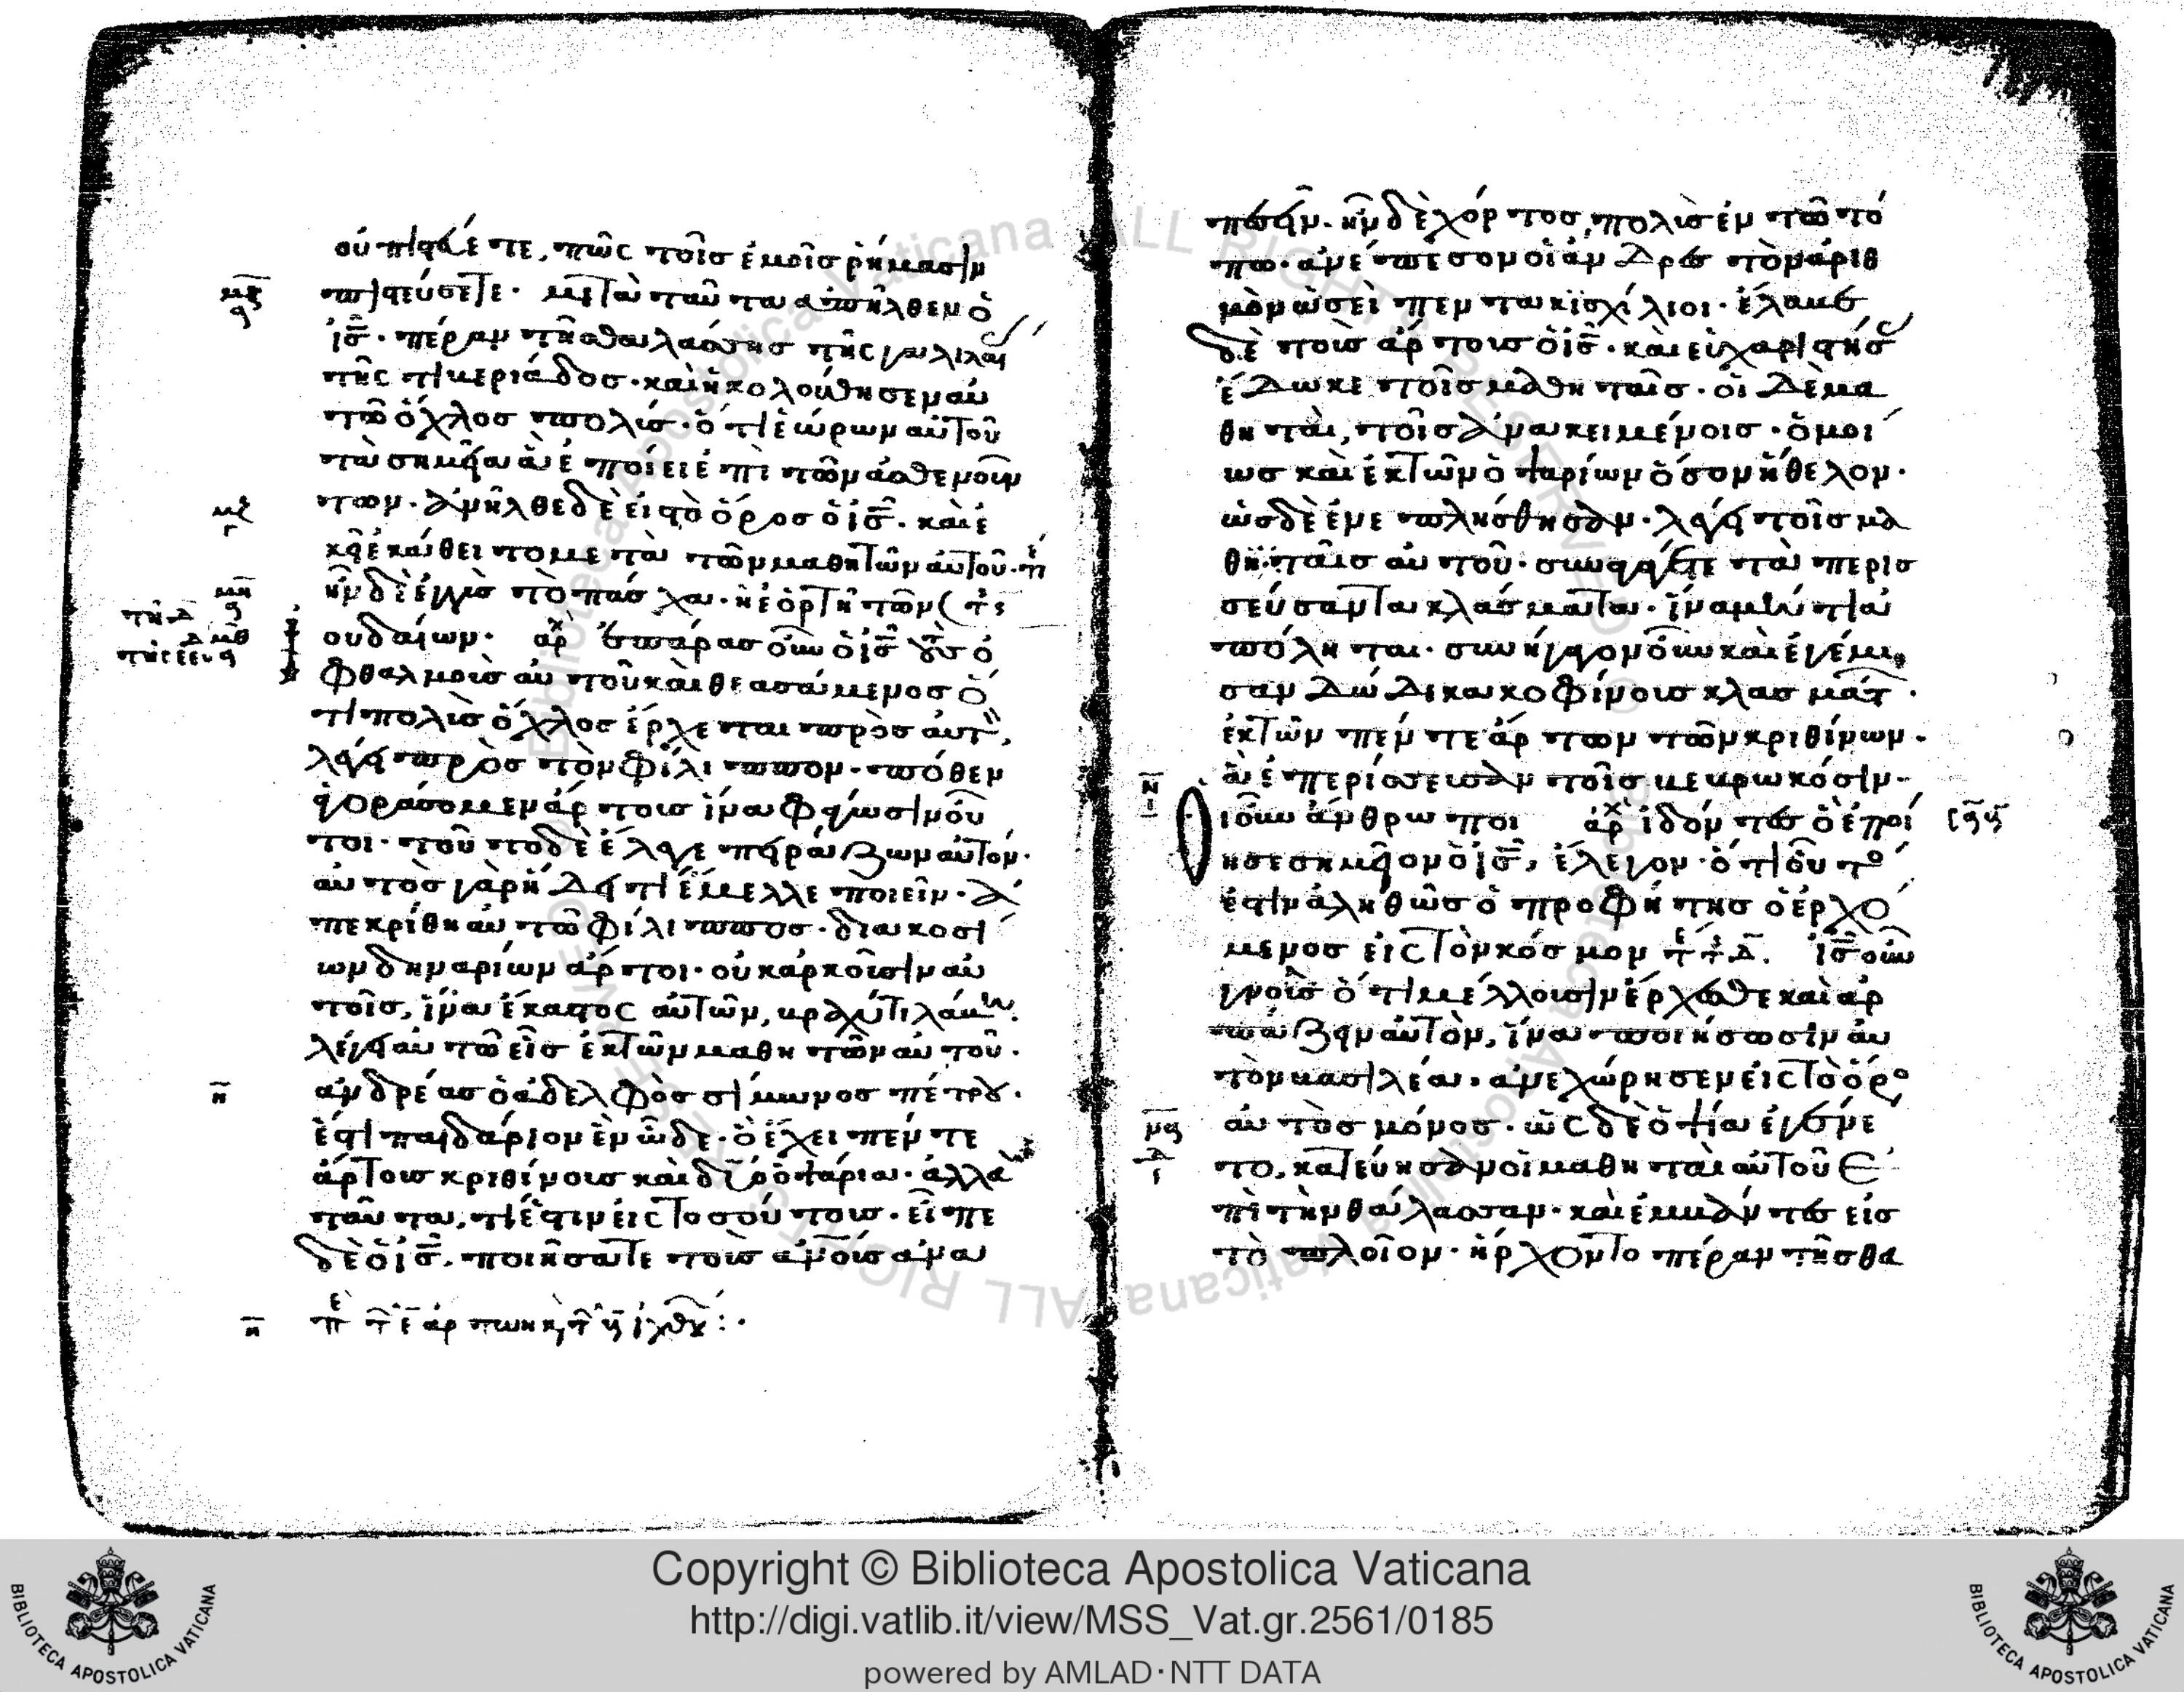 οὐ πιστεύετε, πῶς τοῖσ ἐμοῖσ ρήμασιν
πιστεύσετε· μετὰ ταῦτα ἀπῆλθεν ὁ
ἰσ̅· πέραν τῆσ θαλάσσησ τῆς γαλιλαί
τῆς τιβεριάδοσ· καὶ ἠκολούθησεν αὐ
τῶ ὄχλοσ πολύσ· ὅτι ἑώρων αὐτοῦ
τὰ σημεῖα ἃ ἐποίει ἐπὶ τῶν ἀσθενούν
των· ἀνῆλθε δὲ εἰσ τὸ ὄροσ ὁ ἰσ̅· καὶ ἐ
κεῖ ἐκάθειτο μετὰ τῶν μαθητῶν αὐτοῦ·
ἦν δὲ ἐγγὺσ τὸ πάσχα· ἡ ἑορτὴ τῶν
ουδαίων· ἐπάρασ οὖν ὁ ἰσ̅ τοὺσ ὀ
φθαλμοὺσ αὐτοῦ καὶ θεασάμενοσ ὅ
τι πολὺσ ὄχλοσ ἔρχεται πρὸσ αὐτ,
λέγει πρὸσ τὸν φίλιππον· πόθεν
ἀγοράσομεν ἄρτουσ ἵνα φάγωσιν οὗ
τοι· τοῦτο δὲ ἔλεγε πειράζων αὐτόν·
αὐτὸσ γὰρ ἤδει τί ἔμελλε ποιεῖν· ἀ
πεκρίθη αὐτῶ φίλιπποσ· διακοσί
ων δηναρίων ἄρτοι· οὐκ ἀρκοῦσιν αὐ
τοῖσ, ἵνα ἕκαστος αὐτῶν, βραχύ τι λάβη·
λέγει αὐτῶ εἷσ ἐκ τῶν μαθητῶν αὐτοῦ·
ἀνδρέασ ὁ ἀδελφὸσ σίμωνοσ πέτρου·
ἔστι παιδάριον ἓν ὧδε· ὃ ἔχει πέντε
ἄρτουσ κριθίνουσ καὶ δύο ὀψάρια· ἀλλὰ
ταῦτα, τί ἐστιν εἰς τοσούτουσ· εἶπε
δὲ ὁ ἰσ̅· ποιήσατε τοὺσ ἀνοὺσ ἀνα
πεσεῖν· ἦν δὲ χόρτοσ, πολὺσ ἐν τῶ τό
πω· ἀνέπεσον οἱ ἄνδρεσ τὸν ἀριθ
μὸν ὡσεὶ πεντακισχίλιοι· ἔλαβε
δὲ τοὺσ ἄρτουσ ὁ ἰσ̅· καὶ εὐχαριστήσ
ἔδωκε τοῖσ μαθηταῖσ· οἱ δὲ μα
θηταὶ, τοῖσ ἀνακειμένοισ· ὁμοί
ωσ καὶ ἐκ τῶν ὀψαρίων ὅσον ἤθελον·
ὡσ δὲ ἐνεπλήσθησαν· λέγει τοῖσ μα
θηταῖσ αὐτοῦ· συναγάγετε τὰ περισ
σεύσαντα κλάσματα· ἵνα μή τι ἀ
πόληται· συνήγαγον οὖν καὶ ἐγέμι
σαν δώδεκα κοφίνουσ κλασμάτ·
ἐκ τῶν πέντε ἄρτων τῶν κριθίνων·
ἃ ἐπερίσσευσαν τοῖσ βεβρωκόσιν·
Οἱ οὖν ἄνθρωποι ἰδόντεσ ὃ ἐποί
ησε σημεῖον ὁ ἰσ̅, ἔλεγον· ὅτι οὗτο
ἐστιν ἀληθῶσ ὁ προφήτησ ὁ ἐρχό
μενοσ εἰς τὸν κόσμον ἰσ̅ οὖν
γνοὺσ ὅτι μέλλουσιν ἔρχεσθε καὶ ἁρ
πάζειν αὐτὸν, ἵνα ποιήσωσιν αὐ
τὸν βασιλέα· ἀνεχώρησεν εἰς τὸ ὄρο
αὐτὸσ μόνοσ· ὡς δὲ ὀψία ἐγένε
το, κατέβησαν οἱ μαθηταὶ αὐτοῦ ἐ
πὶ τὴν θάλασσαν· καὶ ἐμβάντεσ εἰσ
τὸ πλοῖον· ἤρχοντο πέραν τῆσ θα
Copyright © Biblioteca Apostolica Vaticana
http://digi.vatlib.it/view/MSS_Vat.gr.2561/0185
powered by AMLAD·NTT DATA
BIBLIOTECA APOSTOLICA VATICANA
BIBLIOTECA APOSTOLICA VATICANA